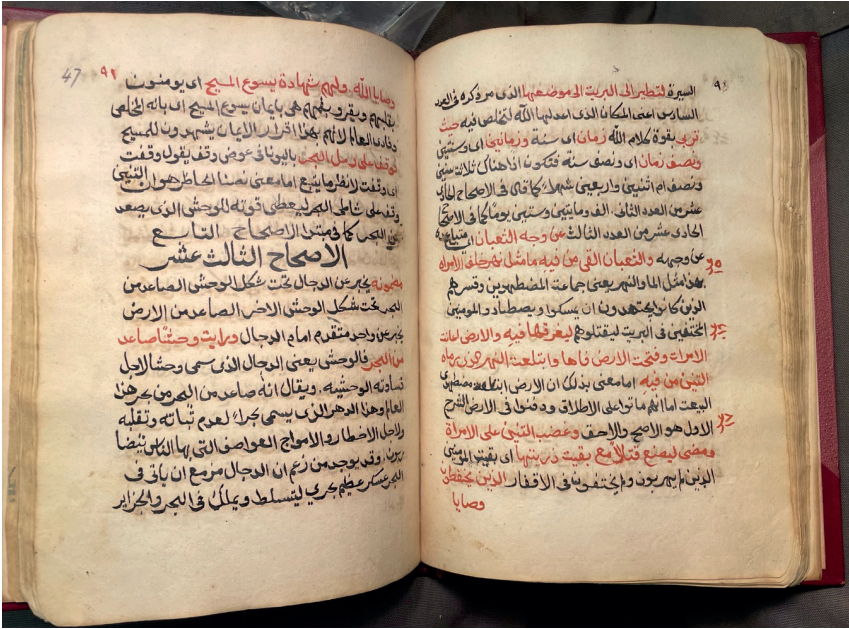 ٩٠
السيرة لتطير الى البريت الى موضعها الذى مر ذكره فى العدد
السادس اعنى المكان الذى اعد لها الله لتخلص فيه حيث
تربى بقوة كلام الله زمان اى سنة وزمانين اى وستين
ونصف زمان اى ونصف سنة فتكون اذا هناك ثلاث سنين
ونصف ام اثنين واربعين شهراً كما قال فى الاصحاح الحادى
عشر من العدد الثانى. الف ومايتين وستين يوماً كما فى الاصحاح
الحادى عشر من العدد الثالث عن وجه الثعبان اى
عن وجهه والثعبان القى من فيه ما مثل نهر خلف الامراة
بهذا مثل الما والنهر يعنى جماعت المضطهدين وقسرهم
الذين كانو يجتهدون ان يمسكوا ويصطادو المومنين
المختفين فى البريت ليقتلوهم ليغرقها فيه والارض اعانت
الامراة وفتحت الارض فاها وابتلعت النهر الذى رماه
التنين من فيه اما معنى بذلك ان الارض ابتلعت مضطهدى
البيعت اما انهم ماتوا على الاطلاق ودفنوا فى الارض الشرح
الاول هو الاصح والاحق وغضب التنين على الامراة
ومضى ليصنع قتالاً مع بقيت ذريتها اى بقيت المومنين
الذين لم يهربون ولم يختفون فى الاقفار الذين يحفظون
وصايا
47 ٩١
وصايا الله. ولهم شهادة يسوع المسيح اى يومنون
بقلبهم ويقرو بفمهم هى بايمان يسوع المسيح اى بانه المخلص
وفادى العالم لانهم بهذا اقرار الايمان يشهدون للمسيح
فوقف على رمل البحر باليونانى عوض وقف يقول وقفت
اى وقفت لانظر ما يتبع اما معنى نصنا الحاظر هو ان التنين
وقف على شاطى البحر ليعطى قوته للوحش الذى يصعد
من البحر كما فى مبتدا الاصحاح التاسع
الاصحاح الثالث عشر
مضمونه يخبر عن الدجال تحت شكل الوحش الصاعد من
البحر تحت شكل الوحش الاخر الصاعد من الارض
يخبر عن واحد متقدم امام الدجال ورايت وحشاً صاعد
من البحر فالوحش يعنى الدجال الذى سمى وحشا لاجل
قساوته الوحشيه. ويقال انه صاعد من البحر من بحر هذا
العالم وهذا الدهر الذى يسمى بحراً لعدم ثباته وتقلبه
ولاجل الاخطار والامواج العواصف التى بها الناس
وقد يوجد من زعم ان الدجال مزمع ان ياتى فى
البحر عسكر عظيم بحرى ليتسلط ويملك فى البحر والجزاير